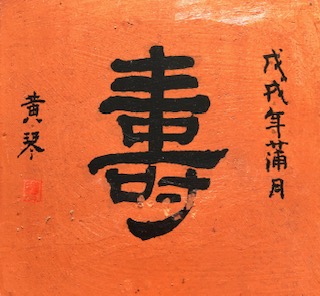 戊戌年蒲月
壽
黄琴